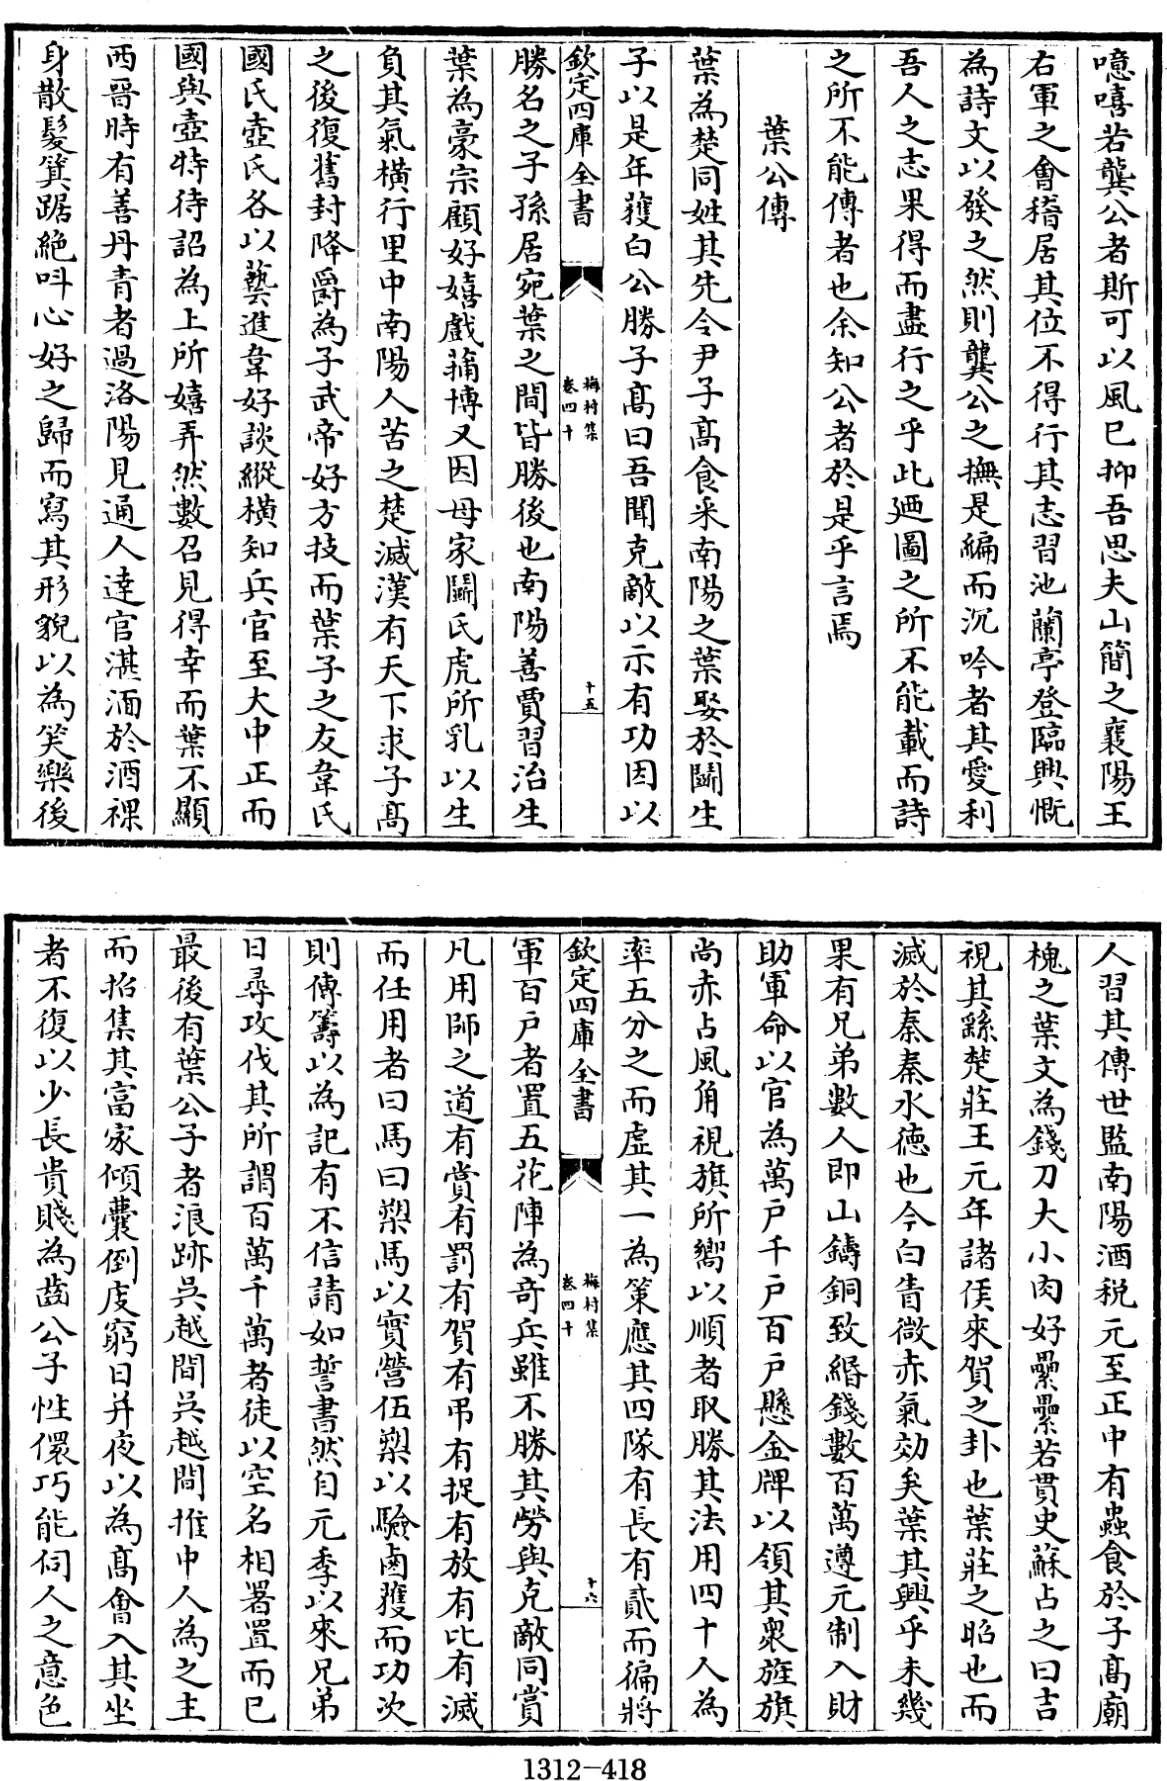 噫嘻若龔公者斯可以風已抑吾思夫山簡之襄陽王
右軍之會稽居其位不得行其志習池蘭亭登臨興慨
為詩文以發之然則龔公之撫是編而沉吟者其愛利
吾人之志果得而盡行之乎此廼圖之所不能載而詩
之所不能傳者也余知公者於是乎言焉
葉公傳
葉為楚同姓其先令尹子高食采南陽之葉娶於鬬生
子以是年獲白公勝子高曰吾聞克敵以示有功因以
欽定四庫全書
梅村集
卷四十
十五
勝名之子孫居宛葉之間皆勝後也南陽善賈習治生
葉為豪宗顧好嬉戲蒱博又因母家鬬氏虎所乳以生
負其氣橫行里中南陽人苦之楚滅漢有天下求子高
之後復舊封降爵為子武帝好方技而葉子之友韋氏
國氏壺氏各以藝進韋好談縱橫知兵官至大中正而
國與壺特待詔為上所嬉弄然數召見得幸而葉不顯
西晉時有善丹青者過洛陽見通人達官湛湎於酒裸
身散髮箕踞絶叫心好之歸而寫其形貌以為笑樂後
人習其傳世監南陽酒税元至正中有蟲食於子高廟
槐之葉文為錢刀大小肉好纍纍若貫史蘇占之曰吉
視其繇楚莊王元年諸侯來賀之卦也葉莊之昭也而
滅於秦秦水德也今白眚微赤氣効矣葉其興乎未幾
果有兄弟數人即山鑄銅致緡錢數百萬遵元制入財
助軍命以官為萬戸千戸百戸懸金牌以領其衆旌旗
尚赤占風角視旗所嚮以順者取勝其法用四十人為
率五分之而虛其一為策應其四隊有長有貳而偏將
欽定四庫全書
梅村集
卷四十
十六
軍百戸者置五花陣為奇兵雖不勝其勞與克敵同賞
凡用師之道有賞有罰有賀有弔有捉有放有比有滅
而任用者曰馬曰槊馬以實營伍槊以驗鹵獲而功次
則傳籌以為記有不信請如誓書然自元季以來兄弟
日尋攻伐其所謂百萬千萬者徒以空名相署置而已
最後有葉公子者浪跡吳越間吳越間推中人為之主
而招集其富家傾囊倒庋窮日并夜以為髙會入其坐
者不復以少長貴賤為齒公子性儇巧能伺人之意色
1312—418